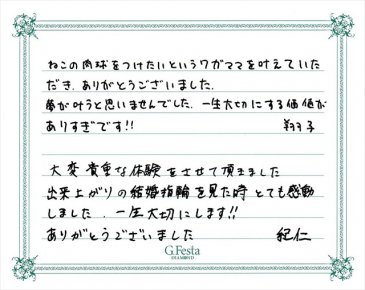 ねこの肉球をつけたいというワガママを叶えていた
だき、ありがとうございました。
夢が叶うと思いませんでした。一生大切にする価値が
ありすぎです!!
翔子
大変貴重な体験をさせて頂きました
出来上がりの結婚指輪を見た時とても感動
しました。一生大切にします!!
ありがとうございました 紀仁
G.Festa
DIAMOND